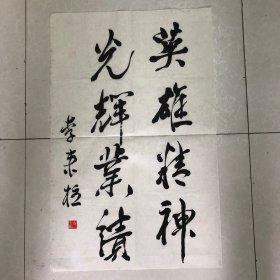 英雄精神
光輝業績
李秉柱